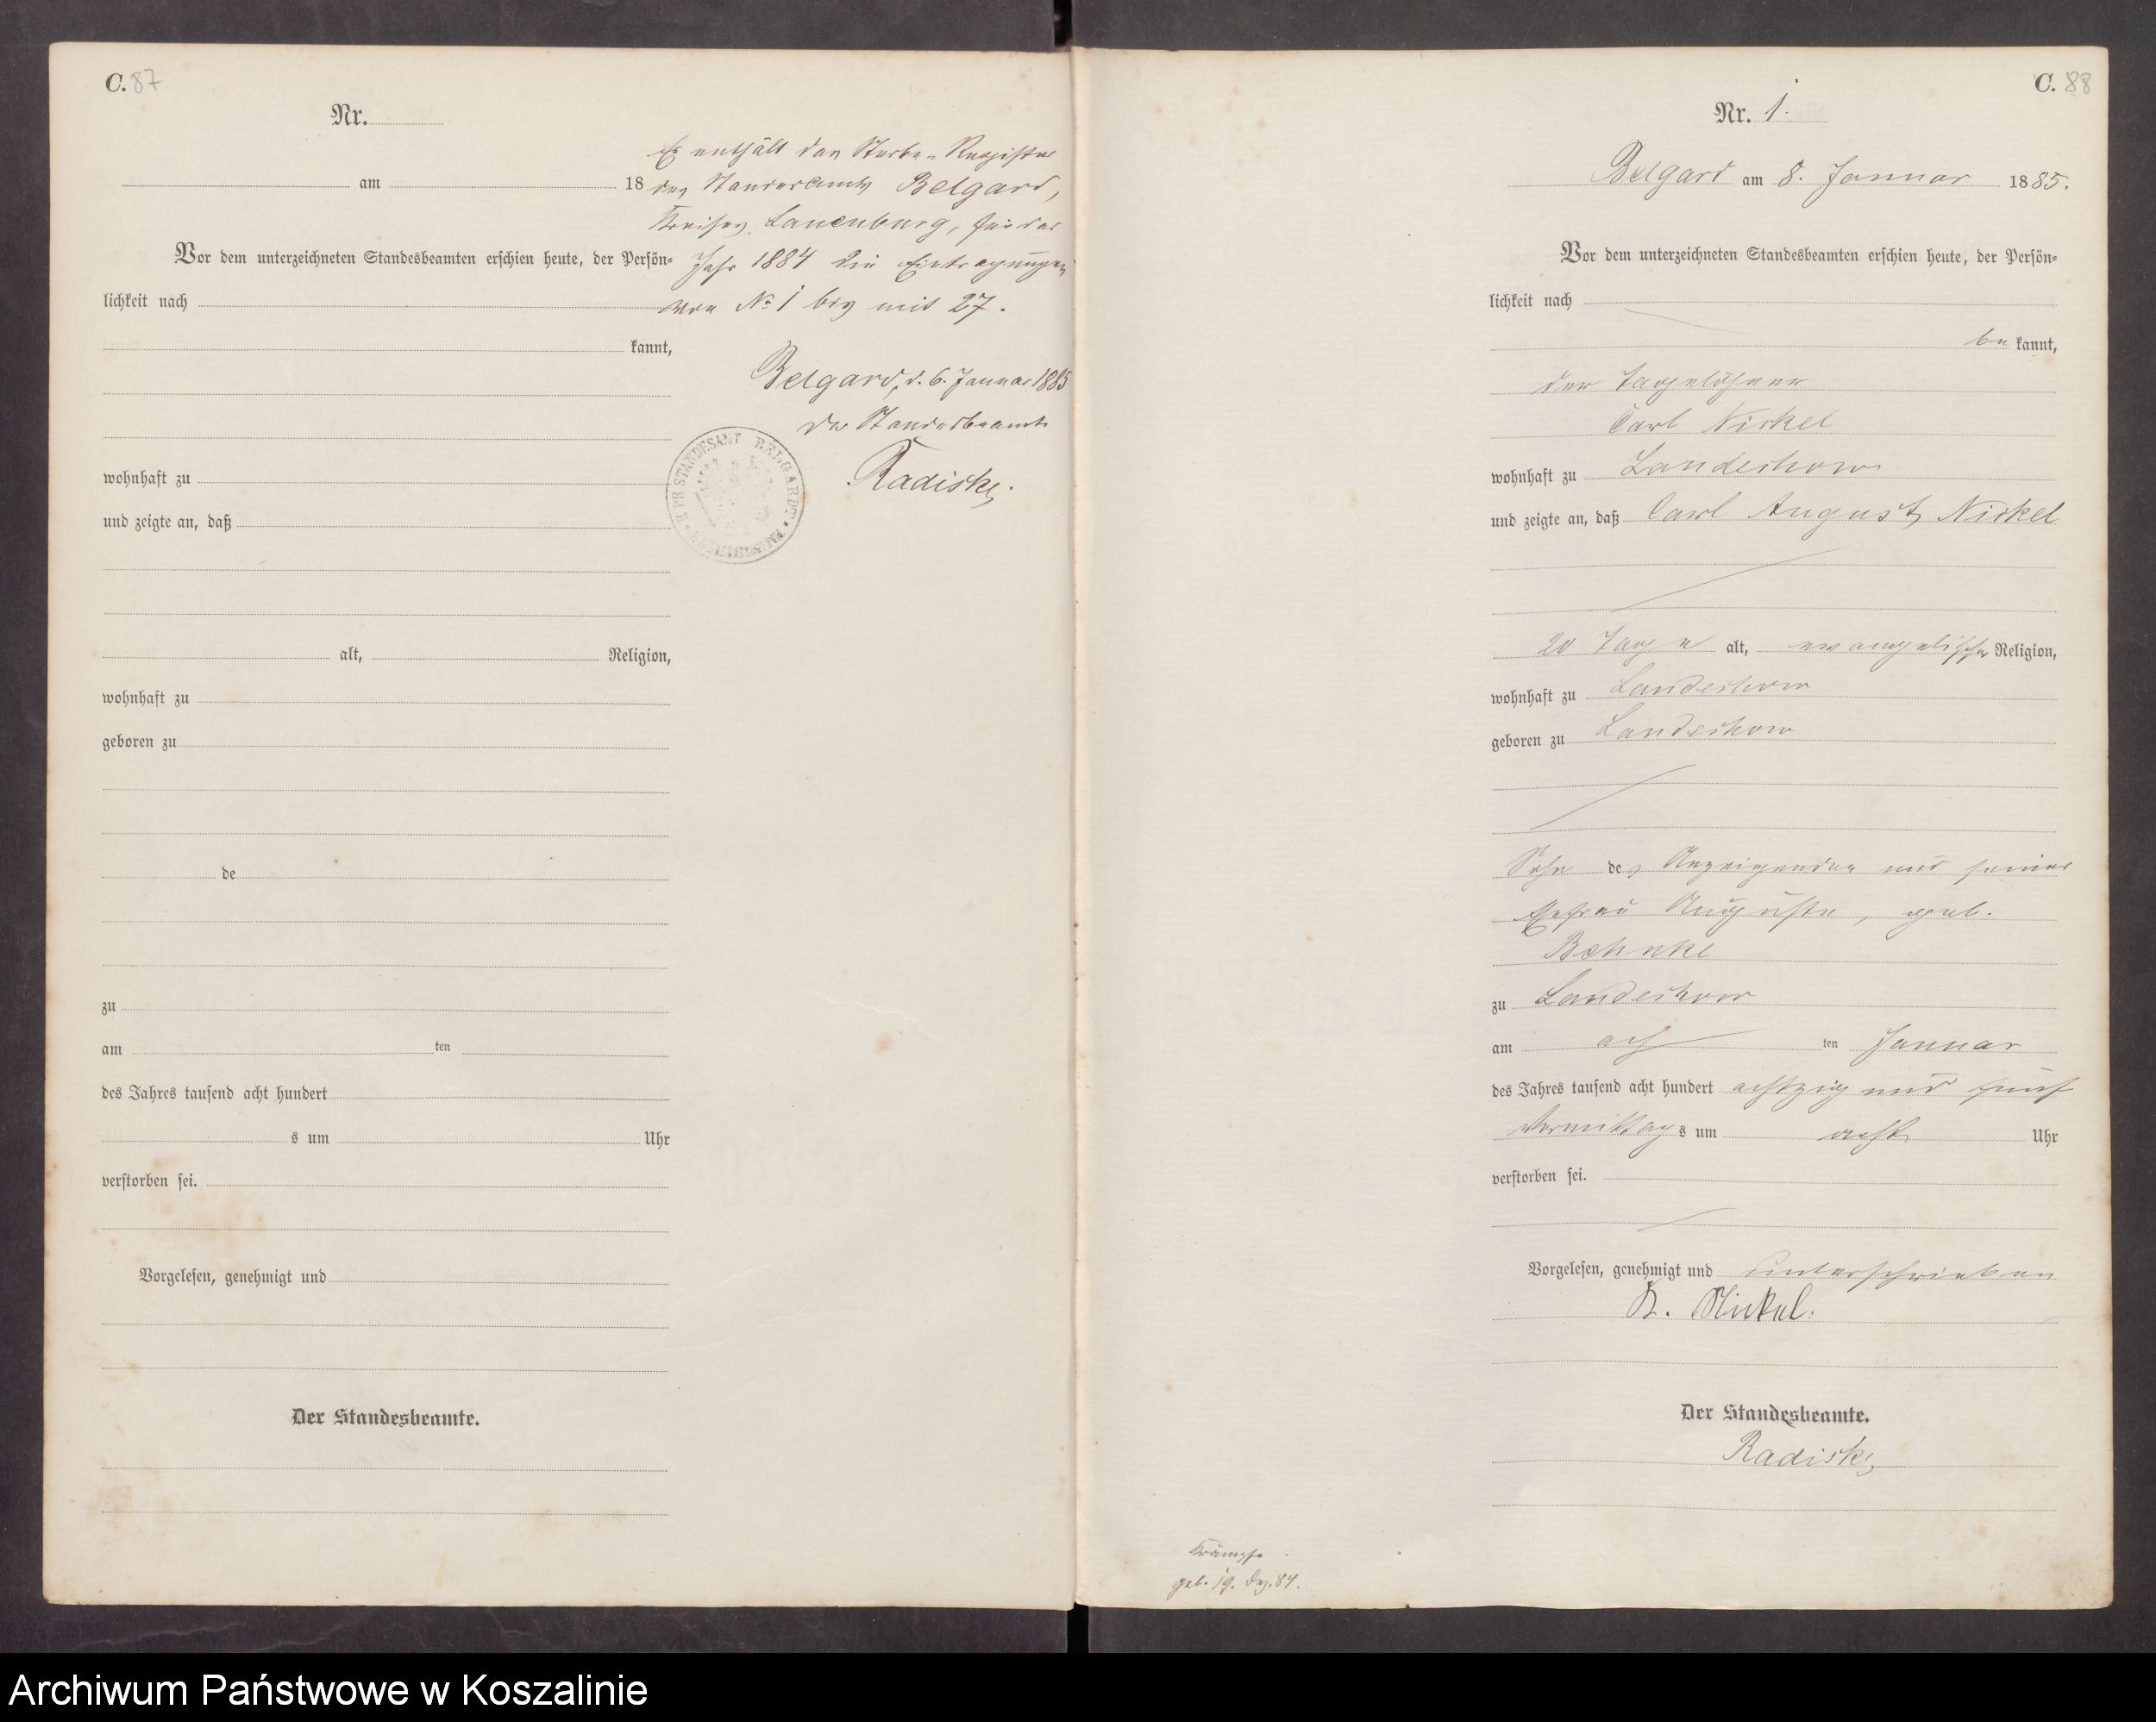 C. 87
Nr.
am 18
Vor dem unterzeichneten Standesbeamten erschien heute, der Persön-
lichkeit nach
kannt,
wohnhaft zu
und zeigte an, daß
alt, Religion,
wohnhaft zu
geboren zu
de
zu
am ten
des Jahres tausend acht hundert
s um Uhr
verstorben sei.
Vorgelesen, genehmigt und
Der Standesbeamte.
Es enthält das Sterbe-Register
des Standesamts Belgard,
Kreises Lauenburg, für das
Jahr 1884 die Eintragungen
von No 1 bis mit 27.
Belgard, d. 6. Januar 1885
Der Standesbeamte
Radiske.
STANDESAMT BELGARD
C. 88
Nr. 1.
Belgard am 8. Januar 1885.
Vor dem unterzeichneten Standesbeamten erschien heute, der Persön-
lichkeit nach
be kannt,
der Tagelöhner
Carl Nickel
wohnhaft zu Landechow
und zeigte an, daß Carl August Nickel
20 Tage alt, evangelischer Religion,
wohnhaft zu Landechow
geboren zu Landechow
Sohn des Anzeigenden und seiner
Ehefrau Auguste, geb.
Behnke
zu Landechow
am ach ten Januar
des Jahres tausend acht hundert achtzig und fünf
Vormittags um acht Uhr
verstorben sei.
Vorgelesen, genehmigt und unterschrieben
K. Nickel.
Der Standesbeamte.
Radiske
Krämpfe
geb. 19. Dez. 84.
Archiwum Państwowe w Koszalinie